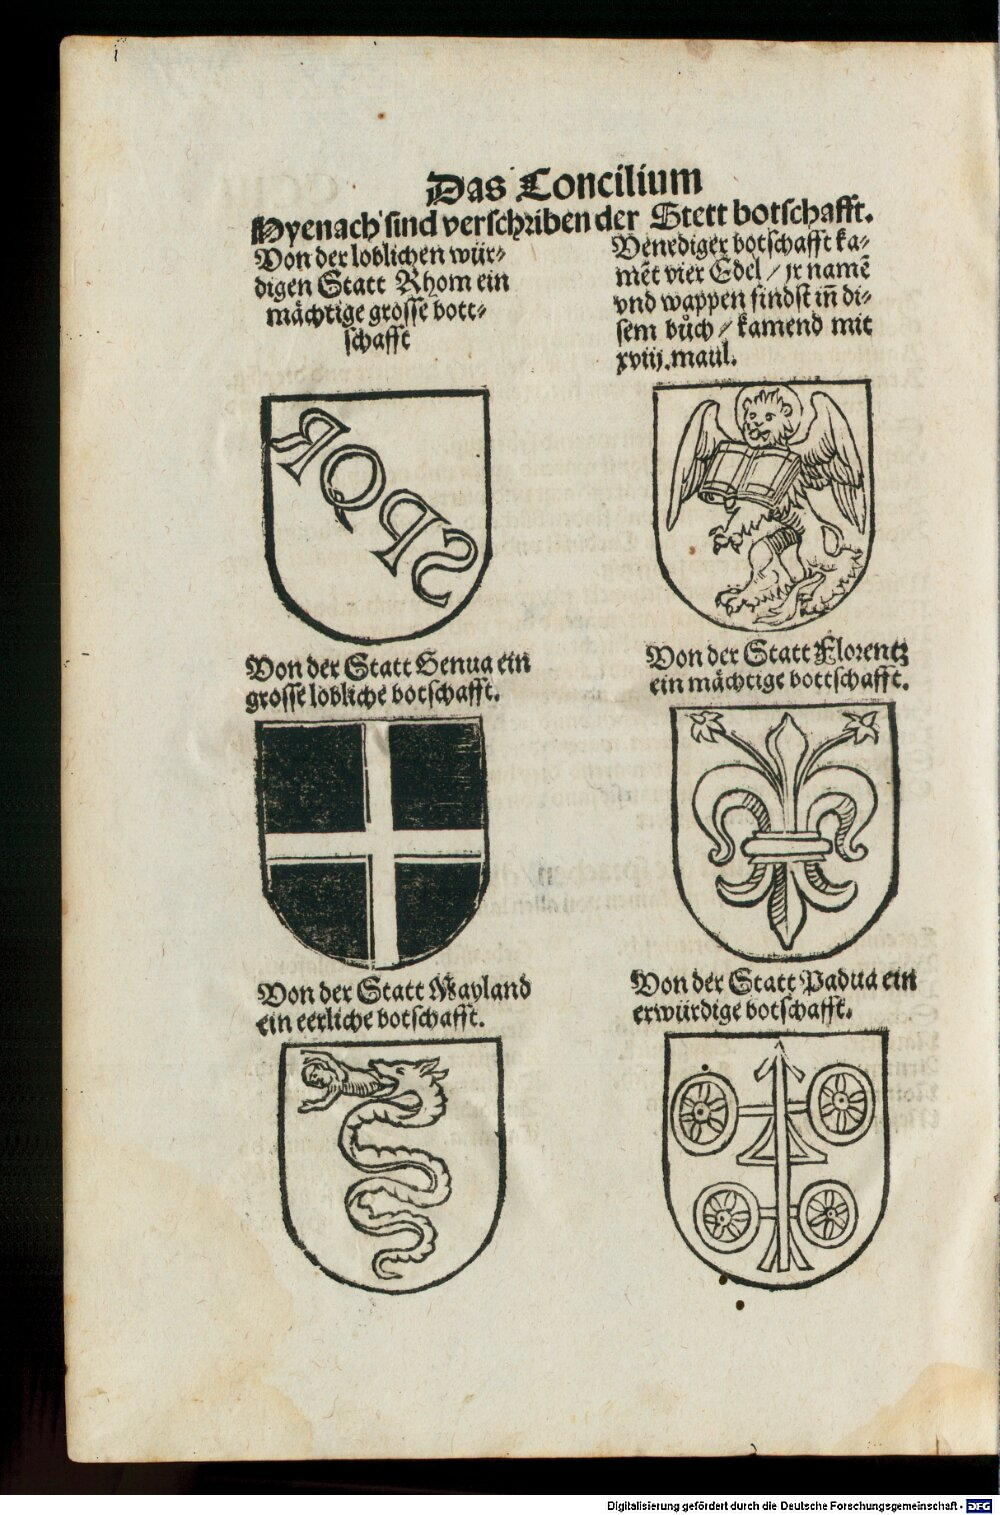 Das Concilium
Hyenach sind verschriben der Stett botschafft.
Von der loblichen wür⸗
digen Statt Rhom ein
mächtige grosse bott⸗
schafft
Venediger botschafft ka⸗
mēt vier Edel / jr namē
vnd wappen findst iñ di⸗
sem bůch / kamend mit
xviij. maul.
SPQR
Von der Statt Genua ein
grosse lobliche botschafft.
Von der Statt Florentz
ein mächtige bottschafft.
Von der Statt Mayland
ein eerliche botschafft.
Von der Statt Padua ein
erwürdige botschafft.
Digitalisierung gefördert durch die Deutsche Forschungsgemeinschaft - DFG